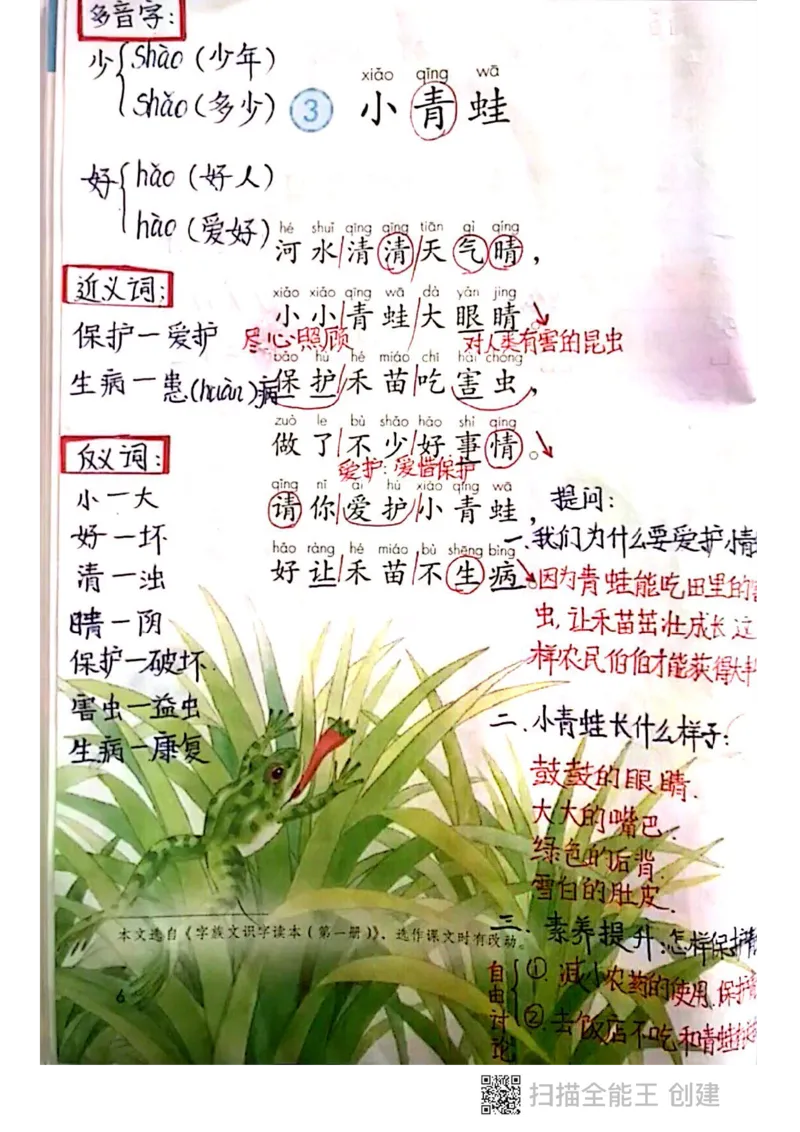 多音字：
少 shào（少年）
shǎo（多少）
好 hǎo（好人）
hào（爱好）
近义词：
保护—爱护
生病—患(huàn)病
反义词：
小—大
好—坏
清—浊
晴—阴
保护—破坏
害虫—益虫
生病—康复
xiǎo qīng wā
3 小青蛙
hé shuǐ qīng qīng tiān qì qíng
河水/清清/天气晴，
xiǎo xiǎo qīng wā dà yǎn jīng
小小/青蛙/大眼睛。
尽心照顾 对人类有害的昆虫
bǎo hù hé miáo chī hài chóng
保护/禾苗/吃害虫，
zuò le bù shǎo hǎo shì qing
做了/不少/好事情。
爱护：爱惜保护
qǐng nǐ ài hù xiǎo qīng wā
请你/爱护/小青蛙，
hǎo ràng hé miáo bù shēng bìng
好让/禾苗/不生病。
提问：
一.我们为什么要爱护小青
因为青蛙能吃田里的
虫，让禾苗茁壮成长这
样农民伯伯才能获得大
二.小青蛙长什么样子：
鼓鼓的眼睛.
大大的嘴巴.
绿色的后背.
雪白的肚皮.
三.素养提升：怎样保护
自由讨论
①.减小农药的使用.保护
②.去饭店不吃和青蛙
本文选自《字族文识字读本（第一册）》，选作课文时有改动。
6
扫描全能王 创建